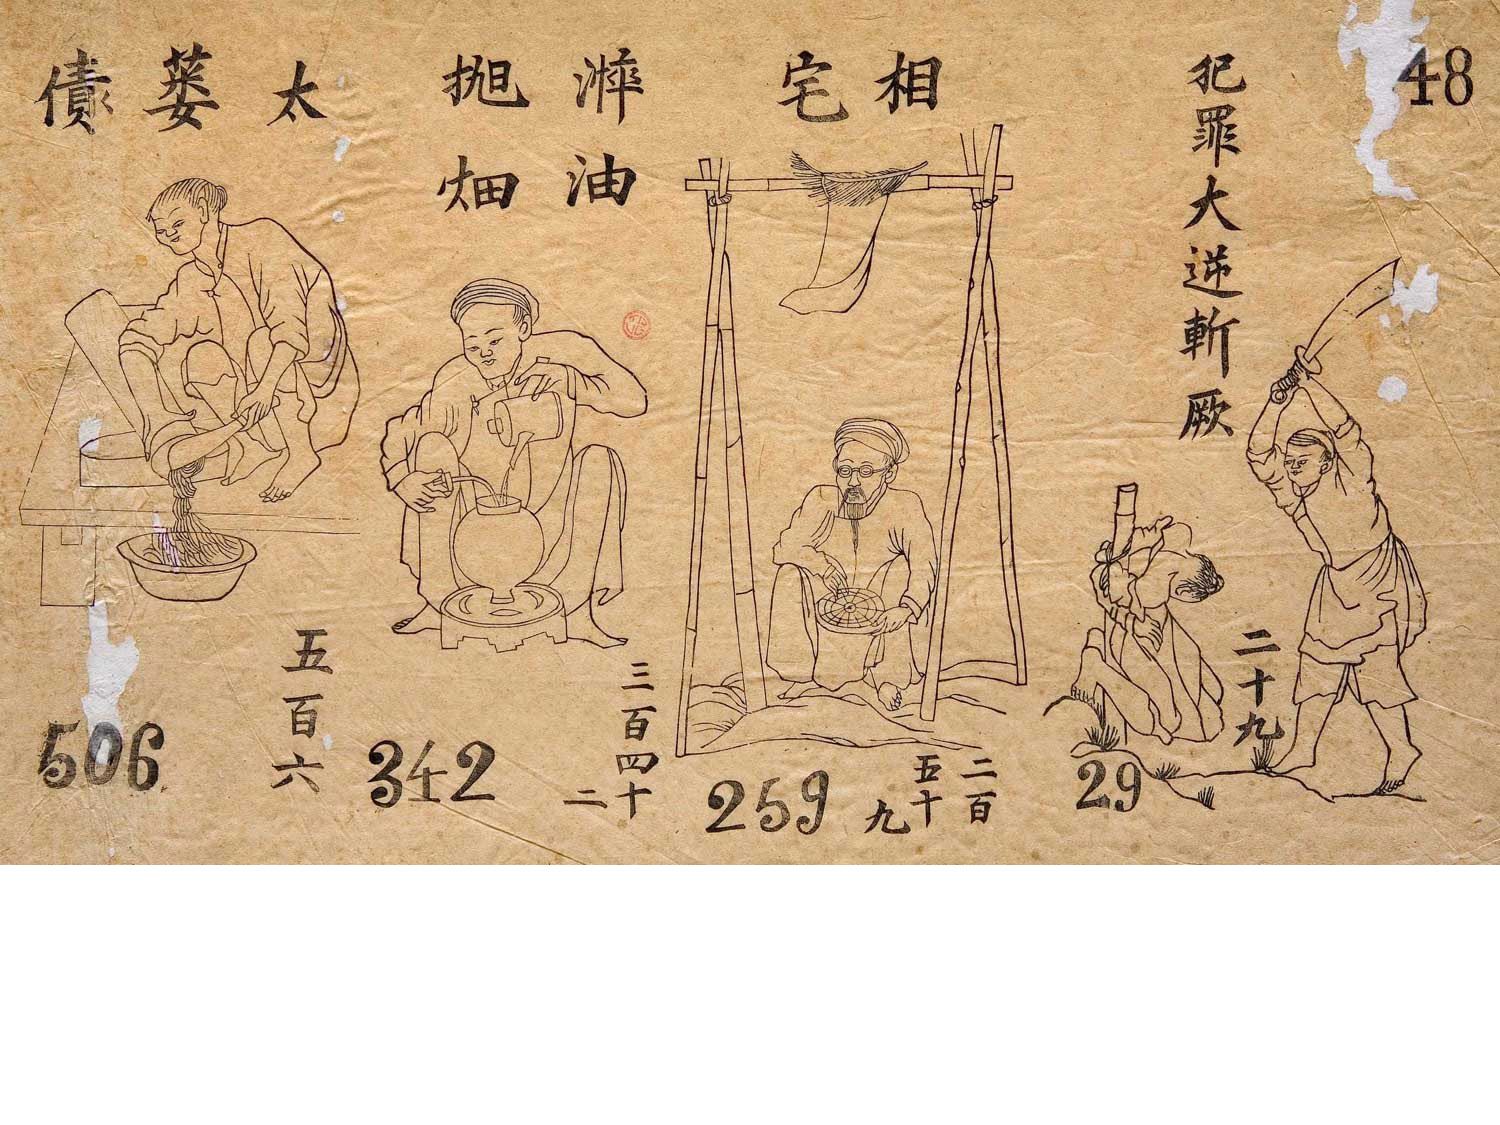 48
犯罪大逆斬厥
二十九
29
相宅
二百
五十
九
259
油
畑
三百四十
二
342
太蒌債
五百六
506